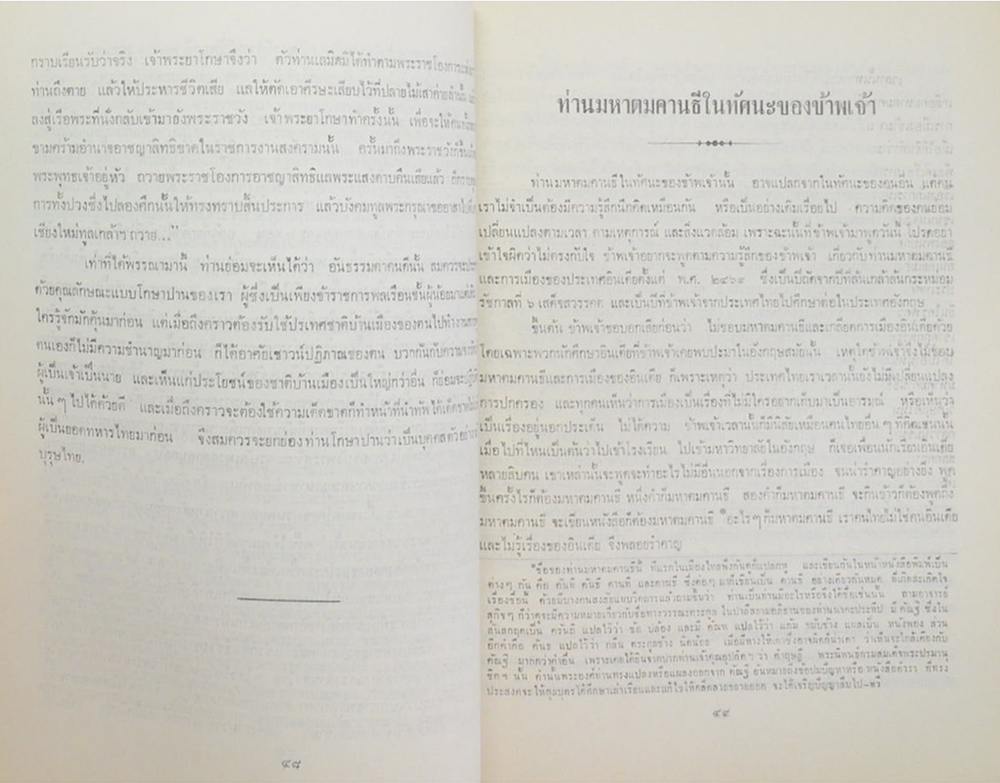 กราบเรียนรับว่าจริง เจ้าพระยาโกษาจึงว่า ตัวท่านละเมิดมิได้ทำตามพระราชโองการ
ท่านถึงตาย แล้วให้ประหารชีวิตเสีย แลให้ตัดเอาศีรษะเสียบไว้ที่ปลายไม้เสาค่ายตำบลนั้น แล้ว
ลงสู่เรือพระที่นั่งกลับเข้ามายังพระราชวัง เจ้าพระยาโกษาทำครั้งนั้น เพื่อจะให้คน
ขามคร้ามอำนาจอาชญาสิทธิขาดในราชการงานสงครามนั้น ครั้นมาถึงพระราชวังก็
พระพุทธเจ้าอยู่หัว ถวายพระราชโองการอาชญาสิทธิแลพระแสงดาบคืนเสียแล้ว
การทั้งปวงซึ่งไปลองศึกนั้นให้ทรงทราบสิ้นประการ แล้วบังคมทูลพระกรุณาขอ
เชียงใหม่ทูลเกล้าฯ ถวาย..."
เท่าที่ได้พรรณามานี้ ท่านย่อมจะเห็นได้ว่า อันธรรมดาคนดีนั้น สมควรจะ
ด้วยคุณลักษณะแบบโกษาปานของเรา ผู้ซึ่งเป็นเพียงข้าราชการพลเรือนชั้นผู้น้อยมา
ใครรู้จักมักคุ้นมาก่อน แต่เมื่อถึงคราวต้องรับใช้ประเทศชาติบ้านเมืองของตนไปทำงาน
ตนเองก็ไม่มีความชำนาญมาก่อน ก็ได้อาศัยเชาวน์ปฏิภาณของตน บวกกันกับความ
ผู้เป็นเจ้าเป็นนาย และเห็นแก่ประโยชน์ของชาติบ้านเมืองเป็นใหญ่กว่าอื่น ก็ย่อมจะ
นั้นๆ ไปได้ด้วยดี และเมื่อถึงคราวจะต้องใช้ความเด็ดขาดก็ทำหน้าที่นำทัพได้เด็ดขาด
ผู้เป็นยอดทหารไทยมาก่อน จึงสมควรจะยกย่องท่านโกษาปานว่าเป็นบุคคลตัวอย่าง
บุรุษไทย.
๔๘
ท่านมหาตมคานธีในทัศนะของข้าพเจ้า
ท่านมหาตมคานธีในทัศนะของข้าพเจ้านั้น อาจแปลกจากในทัศนะของคนอื่น แต่คน
เราไม่จำเป็นต้องมีความรู้สึกนึกคิดเหมือนกัน หรือเป็นอย่างเดิมเรื่อยไป ความคิดของคนย่อม
เปลี่ยนแปลงตามเวลา ตามเหตุการณ์ และสิ่งแวดล้อม เพราะฉะนั้นที่ข้าพเจ้ามาพูดวันนี้ โปรดอย่า
เข้าใจผิดว่าไม่ตรงกับใจ ข้าพเจ้าอยากจะพูดตามความรู้สึกของข้าพเจ้า เกี่ยวกับท่านมหาตมคานธี
และการเมืองของประเทศอินเดียตั้งแต่ พ.ศ. ๒๔๖๙ ซึ่งเป็นปีถัดจากปีที่ล้นเกล้าล้นกระหม่อม
รัชกาลที่ ๖ เสด็จสวรรคต และเป็นปีที่ข้าพเจ้าจากประเทศไทยไปศึกษาต่อในประเทศอังกฤษ
ชั้นต้น ข้าพเจ้าขอบอกเสียก่อนว่า ไม่ชอบมหาตมคานธีและเกลียดการเมืองอินเดียด้วย
โดยเฉพาะพวกนักศึกษาอินเดียที่ข้าพเจ้าเคยพบปะมาในอังกฤษสมัยนั้น เหตุใดข้าพเจ้าจึงไม่ชอบ
มหาตมคานธีและการเมืองของอินเดีย ก็เพราะเหตุว่า ประเทศไทยเราเวลานั้นยังไม่มีเปลี่ยนแปลง
การปกครอง และทุกคนเห็นว่าการเมืองเป็นเรื่องที่ไม่มีใครอยากเก็บมาเป็นอารมณ์ หรือเห็นว่า
เป็นเรื่องอยู่นอกประเด็น ไม่ได้ความ ข้าพเจ้าเวลานั้นก็มีนิสัยเหมือนคนไทยอื่นๆ ที่คิดเช่นนั้น
เมื่อไปที่ไหนเป็นต้นว่าไปเข้าโรงเรียน ไปเข้ามหาวิทยาลัยในอังกฤษ ก็เจอเพื่อนนักเรียนอินเดีย
หลายสิบคน เขาเหล่านั้นจะพูดจะทำอะไรไม่มีอื่นนอกจากเรื่องการเมือง จนน่ารำคาญอย่างยิ่ง พูด
ขึ้นครั้งไรก็ต้องมหาตมคานธี หนึ่งคำก็มหาตมคานธี สองคำก็มหาตมคานธี จะกินข้าวก็ต้องพูดถึง
มหาตมคานธี จะเขียนหนังสือก็ต้องมหาตมคานธี *อะไรๆ ก็มหาตมคานธี เราคนไทยไม่ใช่คนอินเดีย
และไม่รู้เรื่องของอินเดีย จึงพลอยรำคาญ
*ชื่อของท่านมหาตมคานธีนี้ ที่แรกในเมืองไทยฟังกันดูก็แปลกหู และเขียนกันในหน้าหนังสือพิมพ์เป็น
ต่างๆ กัน คือ คันที คันธี คานที และคานธี ซึ่งต่อๆ มาก็เขียนเป็น คานธี อย่างเดียวกันหมด ที่เกิดสะกิดใจ
เรื่องชื่อนี้ ด้วยมีบางคนสงสัย ว่า ท่านเป็นท่านมีอะไรหรือจึงได้ชื่อเช่นนั้น ตามอาจารย์
๔๙